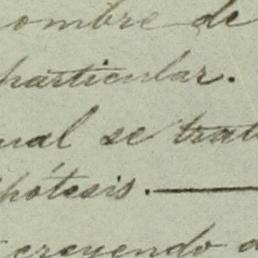 ombre de
particular.
ual se trat
pótesis.—
creyendo